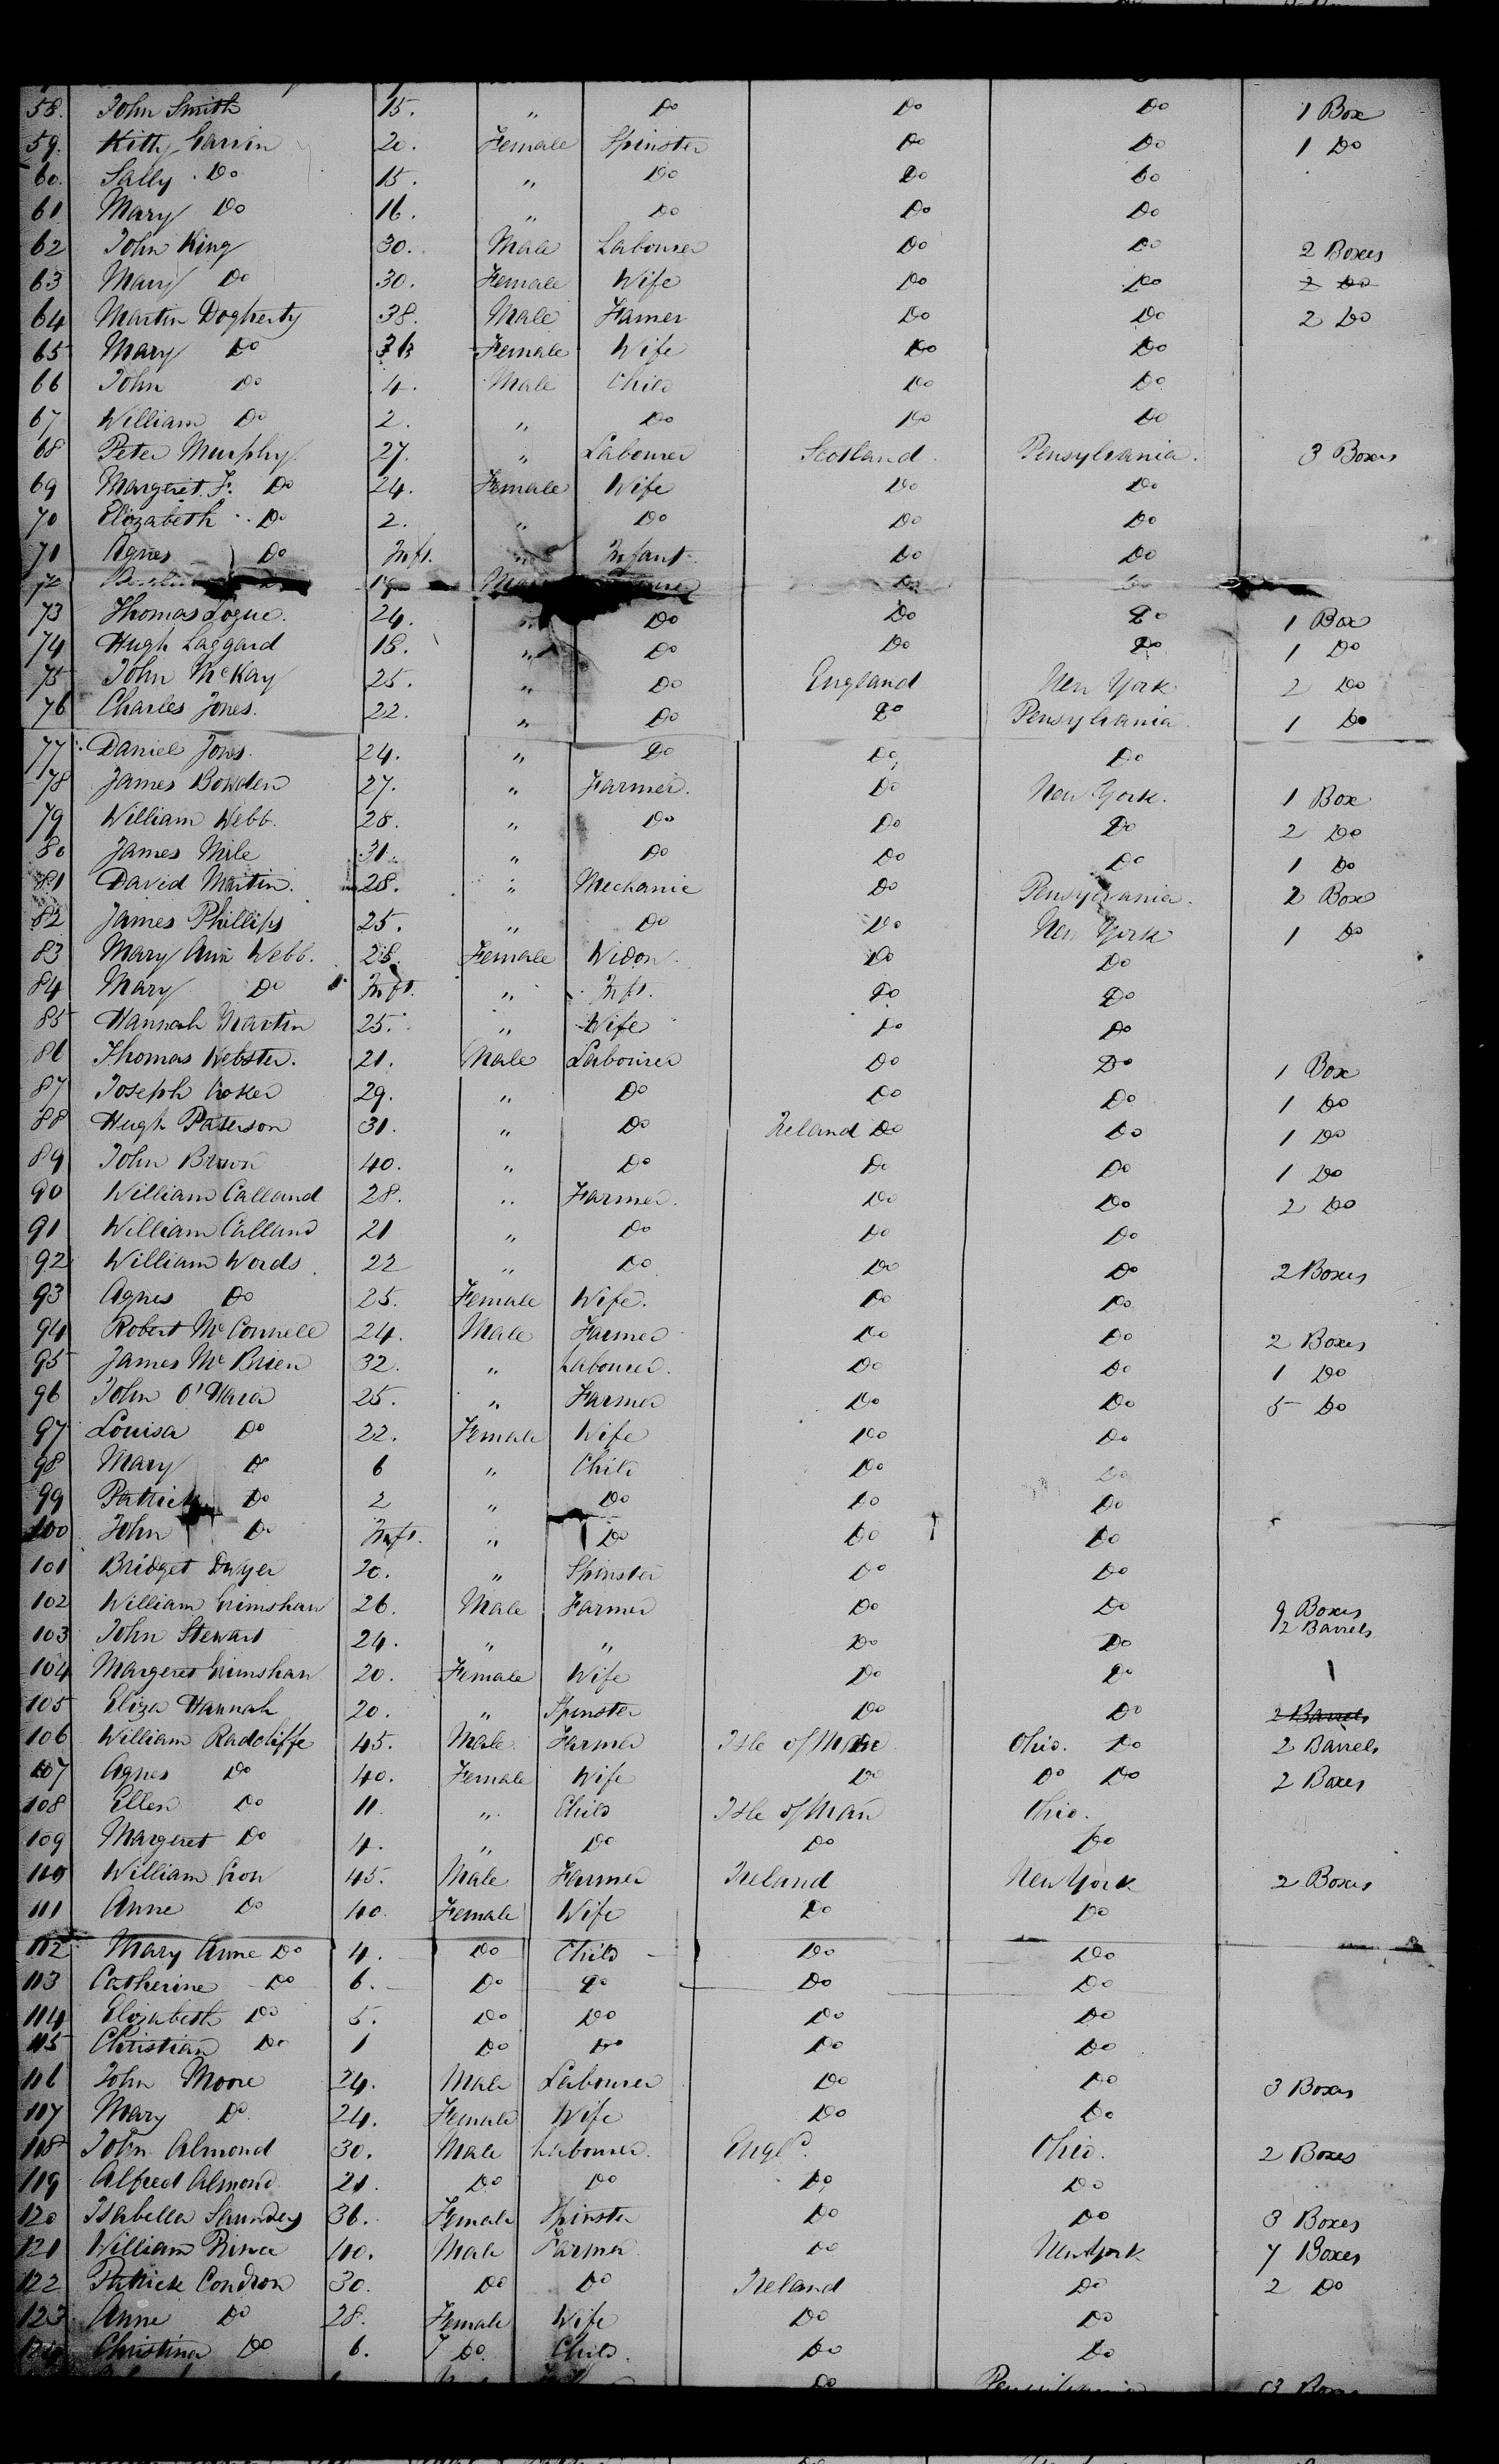 58. John Smith 15. " Do Do Do 1 Box
59. Kitty Garvin 20. Female Spinster Do Do 1 Do
60. Sally Do 15. " Do Do Do
61 Mary Do 16. " Do Do Do
62 John King 30. Male Labourer Do Do 2 Boxes
63 Mary Do 30. Female Wife Do Do 2 Do
64 Martin Dogherty 38. Male Farmer Do Do 2 Do
65 Mary Do 36 Female Wife Do Do
66 John Do 4. Male Child Do Do
67 William Do 2. " Do Do Do
68 Peter Murphy 27. " Labourer Scotland. Pensylvania. 3 Boxes
69 Margeret F. Do 24. Female Wife Do Do
70 Elizabeth Do 2. " Do Do Do
71 Agnes Do Inft. " Infant Do Do
72 19 Do Do
73 Thomas Logue. 24. " Do Do Do 1 Box
74 Hugh Laggard 18. " Do Do Do 1 Do
75 John McKay 25. " Do England New York 2 Do
76 Charles Jones. 22. " Do Do Pensylvania 1 Do
77 Daniel Jones. 24. " Do Do Do
78 James Bowden 27. " Farmer. Do New York. 1 Box
79 William Webb. 28. " Do Do Do 2 Do
80 James Mile 31. " Do Do Do 1 Do
81 David Martin. 28. " Mechanic Do Pensylvania. 2 Box
82 James Phillips 25. " Do Do New York 1 Do
83 Mary Ann Webb. 28. Female Widow. Do Do
84 Mary Do Inft. " Inft. Do Do
85 Hannah Martin 25. " Wife Do Do
86 Thomas Webster. 21. Male Labourer Do Do 1 Box
87 Joseph Coker 29. " Do Do Do 1 Do
88 Hugh Paterson 31. " Do Ireland Do Do 1 Do
89 John Brown 40. " Do Do Do 1 Do
90 William Calland 28. " Farmer. Do Do 2 Do
91 William Calland 21 " Do Do Do
92 William Words 22 " Do Do Do 2 Boxes
93 Agnes Do 25. Female Wife. Do Do
94 Robert McConnell 24. Male Farmer Do Do 2 Boxes
95 James McBrien 32. " Labourer. Do Do 1 Do
96 John O'Hara 25. " Farmer Do Do 5 Do
97 Louisa Do 22. Female Wife Do Do
98 Mary Do 6 " Child Do Do
99 Patrick Do 2 " Do Do Do
100 John Do Inft. " Do Do Do
101 Bridget Dwyer 20. " Spinster Do Do
102 William Grimshaw 26. Male Farmer Do Do 9 Boxes
2 Barrels
103 John Stewart 24. " " Do Do
104 Margeret Grimshaw 20. Female Wife Do Do 1
105 Eliza Hannah 20. " Spinster Do Do 2 Barrels
106 William Radcliffe 45. Male Farmer Isle of Man Ohio. Do 2 Barrels
107 Agnes Do 40. Female Wife Do Do Do 2 Boxes
108 Ellen Do 11. " Child Isle of Man Ohio.
109 Margeret Do 4. " Do Do Do
110 William Crow 45. Male Farmer Ireland New York 2 Boxes
111 Anne Do 40. Female Wife Do Do
112 Mary Anne Do 4. Do Child Do Do
113 Catherine Do 6. Do Do Do Do
114 Elizabeth Do 5. Do Do Do Do
115 Christian Do 1 Do Do Do Do
116 John Moore 24. Male Labourer Do Do 3 Boxes
117 Mary Do 24. Female Wife Do Do
118 John Almond 30. Male Labourer. Engld. Ohio. 2 Boxes
119 Alfred Almond 21. Do Do Do Do
120 Isabella Saunders 36. Female Spinster Do Do 3 Boxes
121 William Prince 40. Male Farmer Do New York 7 Boxes
122 Patrick Condron 30. Do Do Ireland Do 2 Do
123 Anne Do 28. Female Wife Do Do
124 Christina Do 6. Do. Child. Do Do
Do Pensilvania 3 Boxes